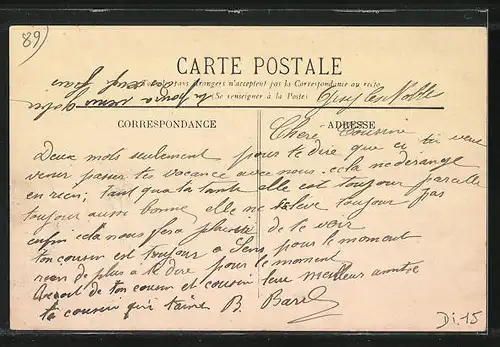 89
CARTE POSTALE
pays étrangers n'acceptent pas la Correspondance au recto
(Se renseigner à la Poste)
Gisy les Nobles
CORRESPONDANCE
ADRESSE
Chere Cousine
Deux mots seulement pour te dire que si tu veux
venir passer tes vacance avec nous cela ne derange
en rien; tant qua ta tante elle est toujour pareille
toujour aussi bonne, elle ne se lève toujour pas
enfin cela nous fera plaisir de te voir
ton cousin est toujour a Sens pour le moment
rien de plus a te dire pour le moment
Recoit de ton cousin et cousine leur meilleur amitie
ta cousine qui t'aime B. Bar
Di.15